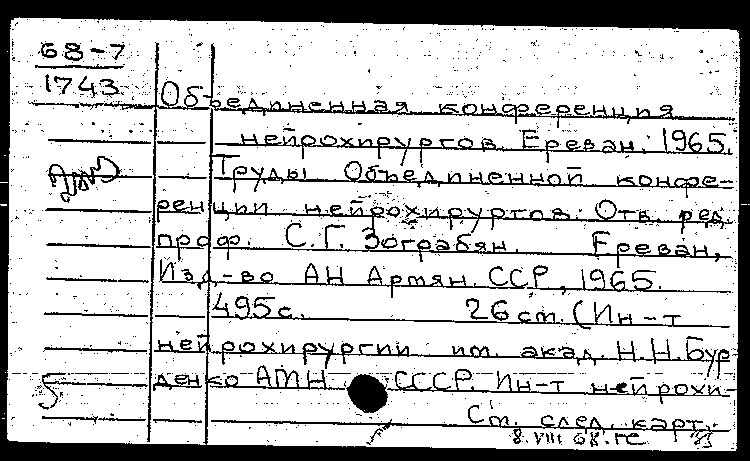 68-7
1743
Объединенная конференция
нейрохирургов. Ереван. 1965.
Труды Объединенной конфе-
ренции нейрохирургов. Отв. ред.
проф. С.Г. Зограбян. Ереван,
Изд-во АН Армян. ССР, 1965.
495с. 26 см. (Ин-т
нейрохирургии им. акад. Н.Н. Бур-
денко АМН СССР. Ин-т нейрохи-
См. след. карт.
8.VIII 68.ГС